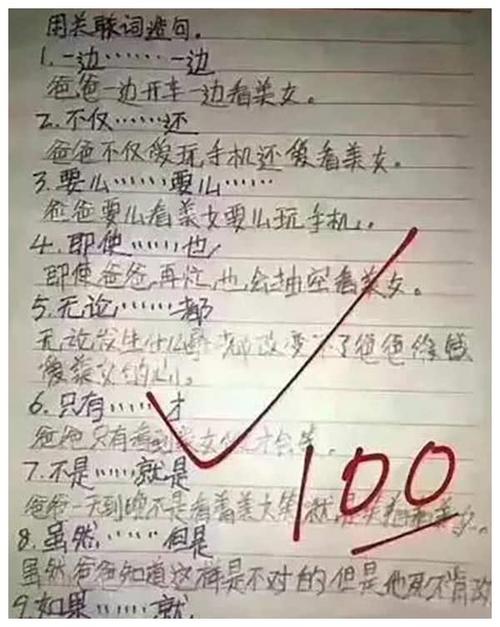 用关联词造句。
1.一边……一边
爸爸一边开车一边看美女。
2.不仅……还
爸爸不仅爱玩手机还爱看美女。
3.要么……要么……
爸爸要么看美女要么玩手机。
4.即使……也
即使爸爸再忙,也会抽空看美女。
5.无论……都
无论发生什么事都改变不了爸爸
爱美女的心。
6.只有……才
爸爸只有看到美女 才会笑。
7.不是……就是
爸爸一天到晚不是看着美女笑就是
8.虽然……但是
虽然爸爸知道这样是不对的但是他死不肯改
9.如果……就
100